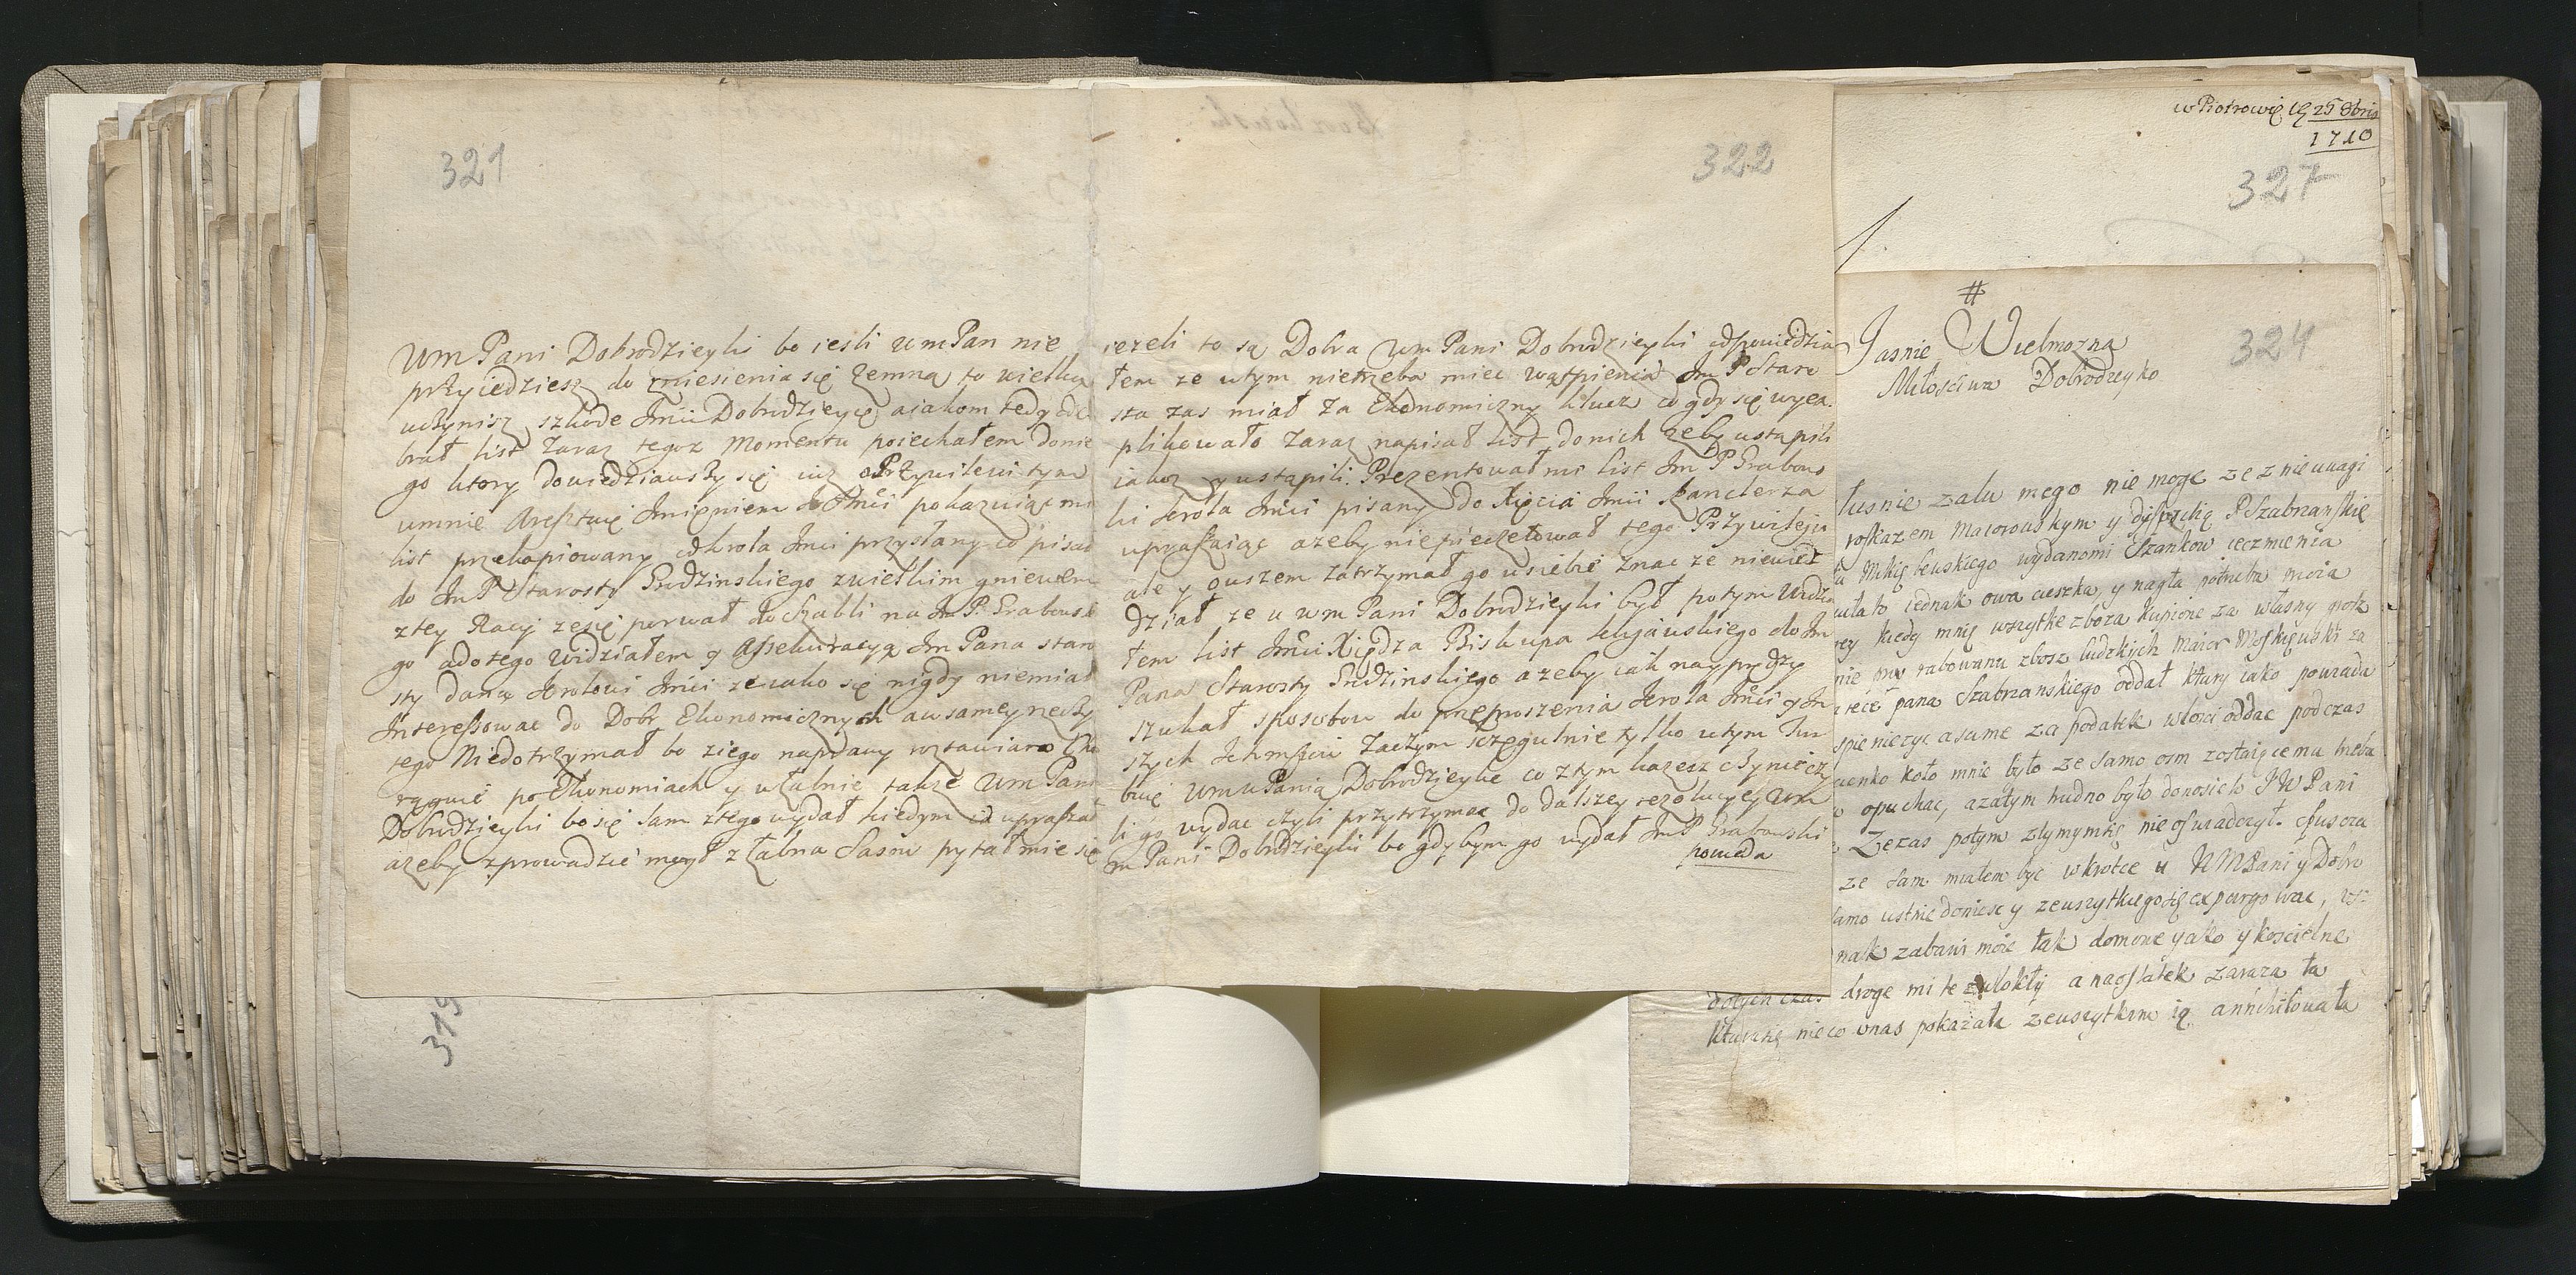 321
Wm Pani Dobrodzieyki bo iesli WmPan nie
przyiedziesz do zniesienia się zemną to wielką
uczynisz szkode Imci Dobrodzieyce aiakom tedy ode
brał list Zaraz tegoz Momentu poiechałem donie
go ktory dowiedziawszy się iuz oPrzywileiu tym
umnie Aresztuię Imieniem Imci pokazuiąc mi
list przekopiowany odkrola Imci przysłany co pisał
do Im P Starosty Grudzinskiego zwielkim gniewem
ztey Racyi zesię porwał do Szabli na Im P. Grabowski
go adotego widziałem y Assekuracyą Im Pana staro
sty daną krolowi Imci ze iako się nigdy niemiał
Interessowac do Dobr Ekonomicznych awsamey rzeczy
tego Niedotrzymał bo ziego naprawy
po Ekonomiach y własnie także Wm Pani
Dobrodzieyki bosię sam ztego wydał kiedym upraszał
azeby zprowadzic mogł z Łabna Sasow pytał mie się
322
iezeli to są Dobra Wm Pani Dobrodzieyki odpowiedzia
łem ze wtym nietrzeba miec wątpienia Im P Staro
sta zas miał za Ekonomiczny klucz co gdy się wyex
plikowało zaraz napisał list donich zeby ustąpili
iakoz y ustąpili. Prezentował mi list Im P Grabows
ki krola Imci pisany do Xięcia Imci Kanclerza
upraszaiąc azeby niepieczętował tego Przywileju
ale y owszem zatrzymał go usiebie znac ze niewied
dział ze u wm Pani Dobrodzieyki był potym widzia
łem list Imci Xiędza Biskupa kujawskiego do Im
Pana Starosty Grudzinskiego azeby iak nayprędzy
szukał sposobow do przeproszenia krola Imci y In
szych Ichmściow Zaczym szczegulnie tylko wtym Tur
buię WmPanią Dobrodzieykę co ztym kazesz czynic czy
li go wydac czyli przytrzymac do dalszey rezolucyey Wm
m Pani Dobrodzieyki bo gdybym go wydał Im P Grabowski
powieda
w Piotrowie 25 8bris
1710
327
324
#
Jasnie Wielmozna
Miłosciwa Dobrodzeyko
lusnie zalu mego nie moge ze z nie uwagi
roskazem Maiorowskym y dyspozycią P Szabranskie
wydanomi Szankow ięczmienia
iednak owa cieszka, y nagła potrzeba moia
kiedy mnię wszytke zboza kupione za własny grosz
nie przy rabowaniu zbosz ludzkich Maior za
rece pana Szabranskiego oddał ktury iako powiada
spieniezyc a sume za podatek włosci oddac podczas
koło mnie było ze samo osm zostaiącemu trzeba
opuchac, azatym trudno było donosic to JWPani
Zezas potym nie ofiaraczył. Spuscza
ze sam miałem byc wkrotce u WMPani y Dobro
samo ustnie donieśc y zewszytkiego się expurgowac,
nak zabawi moie tak domowe yako y koscielne
dotych czas droge mi te zwlokły a naostatek zaraza ta
ktura się nieco unas pokazała zewszytkim ią annihilowała
319